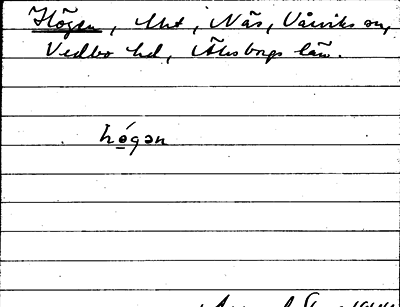 Högen, Mt, Nås, Vårviks sn,
Vedbo hd, Älvsborgs län.
hǿgən